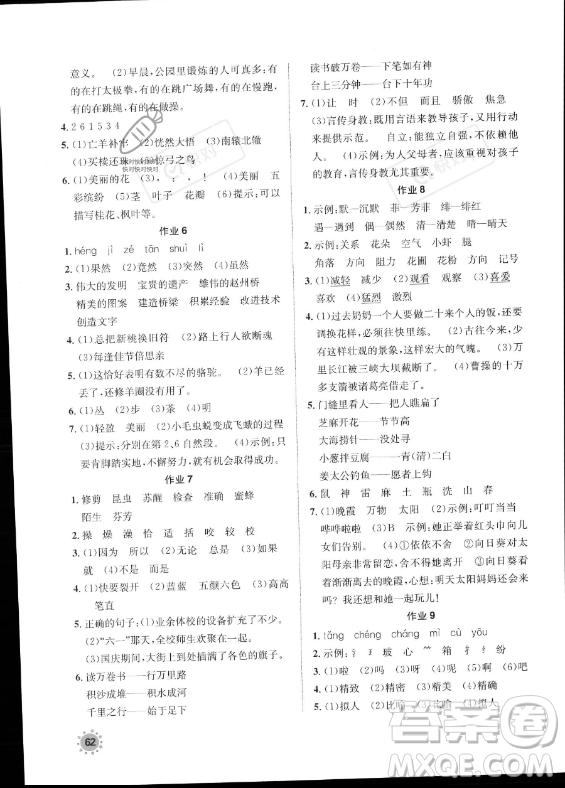 意义。 (2)早晨,公园里锻炼的人可真多:有
的在打太极拳,有的在跳广场舞,有的在慢跑,
有的在跳绳,有的在做操。
4. 2 6 1 5 3 4
5. (1)亡羊补牢 (2)恍然大悟 (3)南辕北辙
(4)买椟还珠 (5)惊弓之鸟
6. (1)美丽的花 (2) (3), ; , ! (4)美丽 五
彩缤纷 (5)茎 叶子 花瓣 (6)提示:可以
描写桂花、枫叶等。
作业 6
1. héng jì zé tān shuì lì
2. (1)果然 (2)竟然 (3)突然 (4)虽然
3. 伟大的发明 宝贵的遗产 雄伟的赵州桥
精美的图案 建造桥梁 积累经验 改进技术
创造文字
4. (1)总把新桃换旧符 (2)路上行人欲断魂
(3)每逢佳节倍思亲
5. (1)这恰好表明有数不尽的骆驼。 (2)羊已经
丢了,还修羊圈没有用了。
6. (1)丛 (2)步 (3)条 (4)明
7. (1)轻盈 美丽 (2)小毛虫蜕变成飞蛾的过程
(3)提示:分别在第 2、6 自然段。 (4)示例:只
要肯脚踏实地,不懈努力,就有机会获得成功。
作业 7
1. 修剪 昆虫 苏醒 检查 准确 蜜蜂
陌生 芬芳
2. 操 燥 澡 恰 适 括 咬 较 校
3. (1)因为 所以 (2)无论 总是 (3)虽然
但是
4. (1)快要裂开 (2)蓝蓝 五颜六色 (3)高高
笔直
5. 正确的句子:(1)业余体校的设备充足了不少。
(2)“六一”那天,全校师生欢聚在一起。
(3)国庆期间,大街小巷到处插满了鲜艳的旗子。
6. 读万卷书——行万里路
积沙成堆——积水成河
千里之行——始于足下
62
读书破万卷——下笔如有神
台上三分钟——台下十年功
7. (1)详细 打断 能干 骄傲 焦急
(3)言传身教,既用言语来教导孩子,又用行动
来提供示范。 自立自强,能独立解决,不依赖
他人。 (4)示例:为人父母者,要重视对孩子
的教育,言传身教尤其重要。
作业 8
1. 示例:默—沉默 菲—芳菲 绯—绯红
遇—遇到 偶—偶然 清—清楚 晴—晴天
2. 示例:关系 花朵 空气 小虾 腿
角落 方向 阻力 花圃 模型 蝴蝶
3. (1)减轻 减少 (2)观看 观察 (3)喜爱
喜欢 (4)猛烈 激烈
4. (1)过去奶奶一个人要做二十来个人的饭,还要
调换花样,必须往快里练。 (2)只有这样,才有
那样壮观的景象,这样宏大的气魄。 (3)万
里长江被三峡大坝截断了。 (4)曹操的十万
多支箭被诸葛亮借来了。
5. 门缝里看人——把人瞧扁了
芝麻开花——节节高
大海捞针——没处寻
小葱拌豆腐——一青(清)二白
姜太公钓鱼——愿者上钩
6. 鼠 神 雷 麻 土 瓶 洗 山 春
7. (1)晚霞 万物 太阳 (2)示例:叮叮当当
哗啦啦 (3)B 示例:晚霞笑红了脸,正和少
女们告别。 (4)①依依不舍 ②向日葵对太
阳母亲非常留恋,舍不得她离开。 ③向日葵看
着渐渐离去的晚霞,心想:明天太阳妈妈还会来
吗?我还想和她一起玩儿!
作业 9
1. tǎng chéng cháng mì cù yōu
2. 示例: 氵 王 玻 心 ⺮ 箱 扌 纷
纷
3. (1)精致 (2)精美 (3)确定 (4)确实
4. (1)拟人 (2)比喻 (3)比喻 (4)拟人
答案圈
MXQE.COM
快对快对快对
快对快对快对
快对